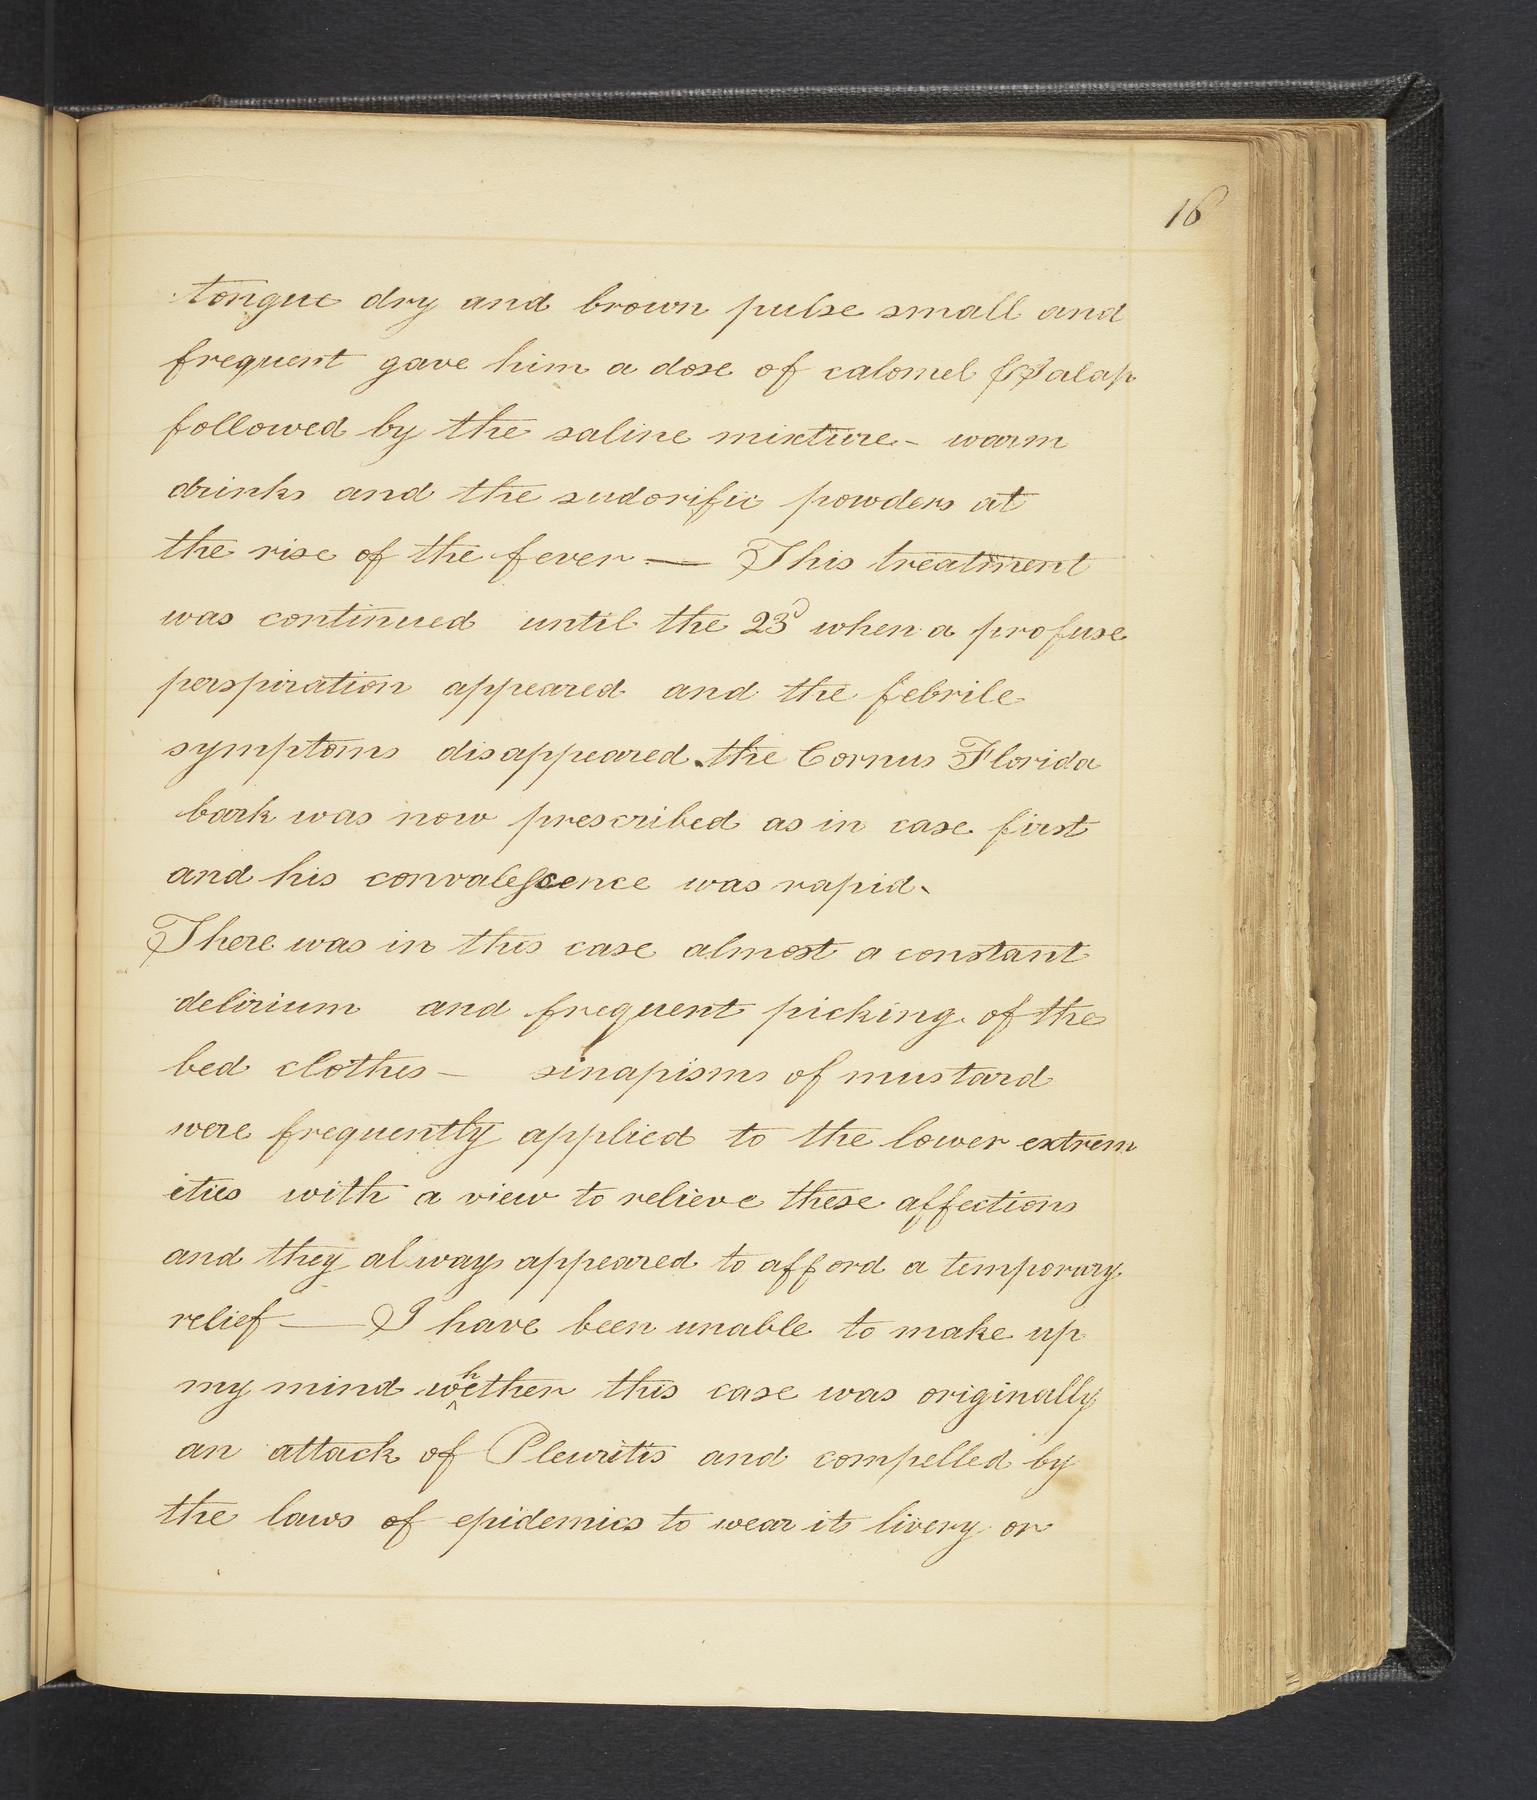 16
tongue dry and brown pulse small and
frequent gave him a dose of calomel & Jalap
followed by the saline mixture - warm
drinks and the sudorific powders at
the rise of the fever — This treatment
was continued until the 23d when a profuse
perspiration appeared and the febrile
symptoms disappeared. the Cornus Florida
bark was now prescribed as in case first
and his convalescence was rapid.
There was in this case almost a constant
delirium and frequent picking of the
bed clothes — sinapisms of mustard
were frequently applied to the lower extrem
ities with a view to relieve these affections
and they always appeared to afford a temporary
relief — I have been unable to make up
my mind whether this case was originally
an attack of Pleuritis and compelled by
the laws of epidemics to wear its livery or